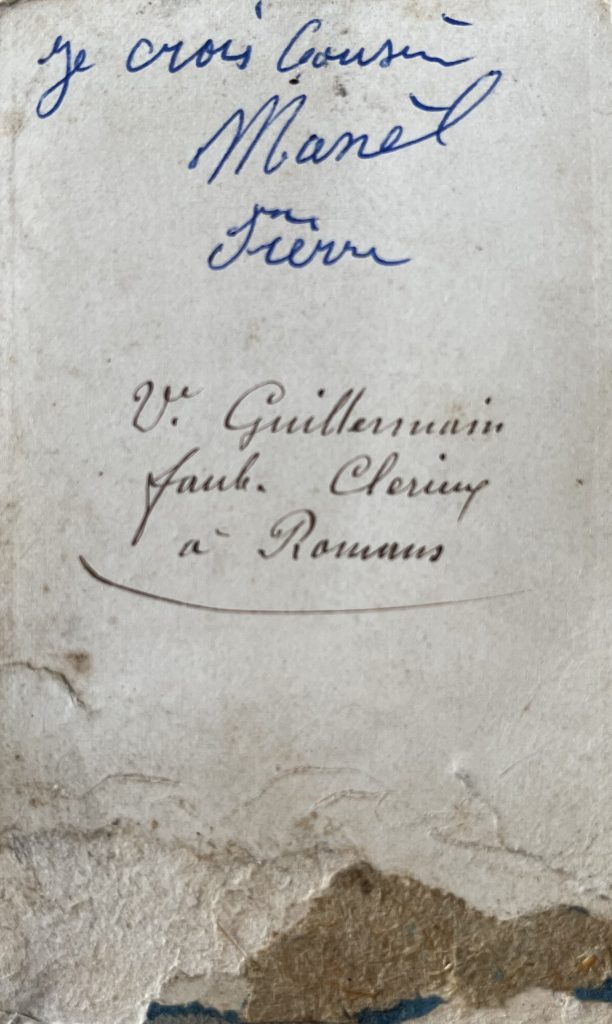 Je crois Cousin
Manel
Pierre
Ve. Guillermain
faub. Clerieux
à Romans